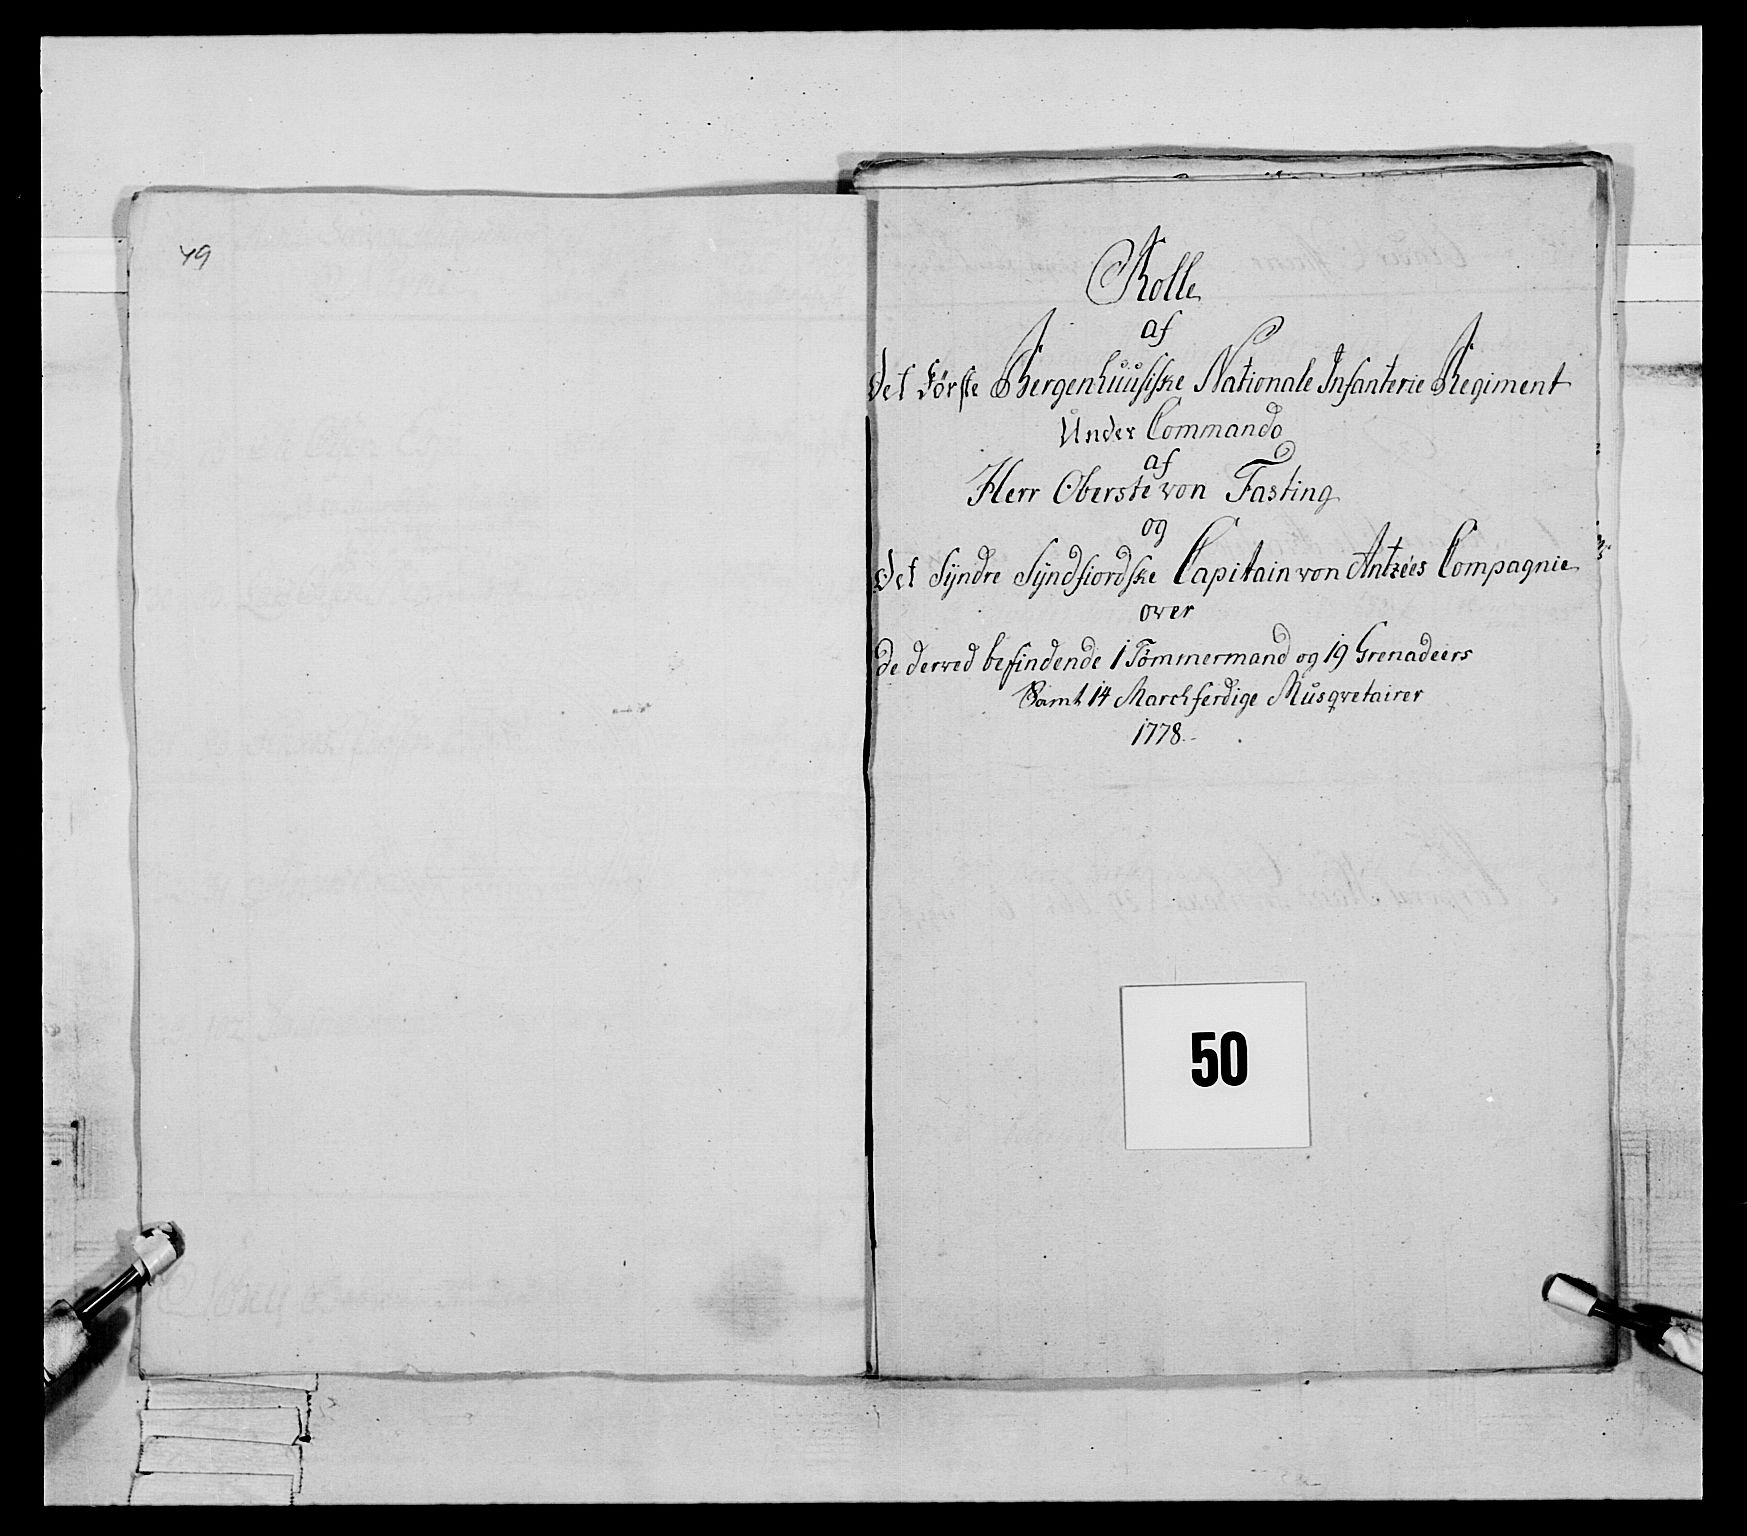 49
Rolle
af
det Første Bergenhuusiske Nationale Infanterie Regiment
Under Commando
af
Herr Oberste von Fasting
og
det Syndre Syndfiordske Capitain von Antzées Compagnie
over
de derved befindende 1 Tømmermand og 19 Grenadeers
Samt 14 Marchferdige Musqvetairer
1778
50